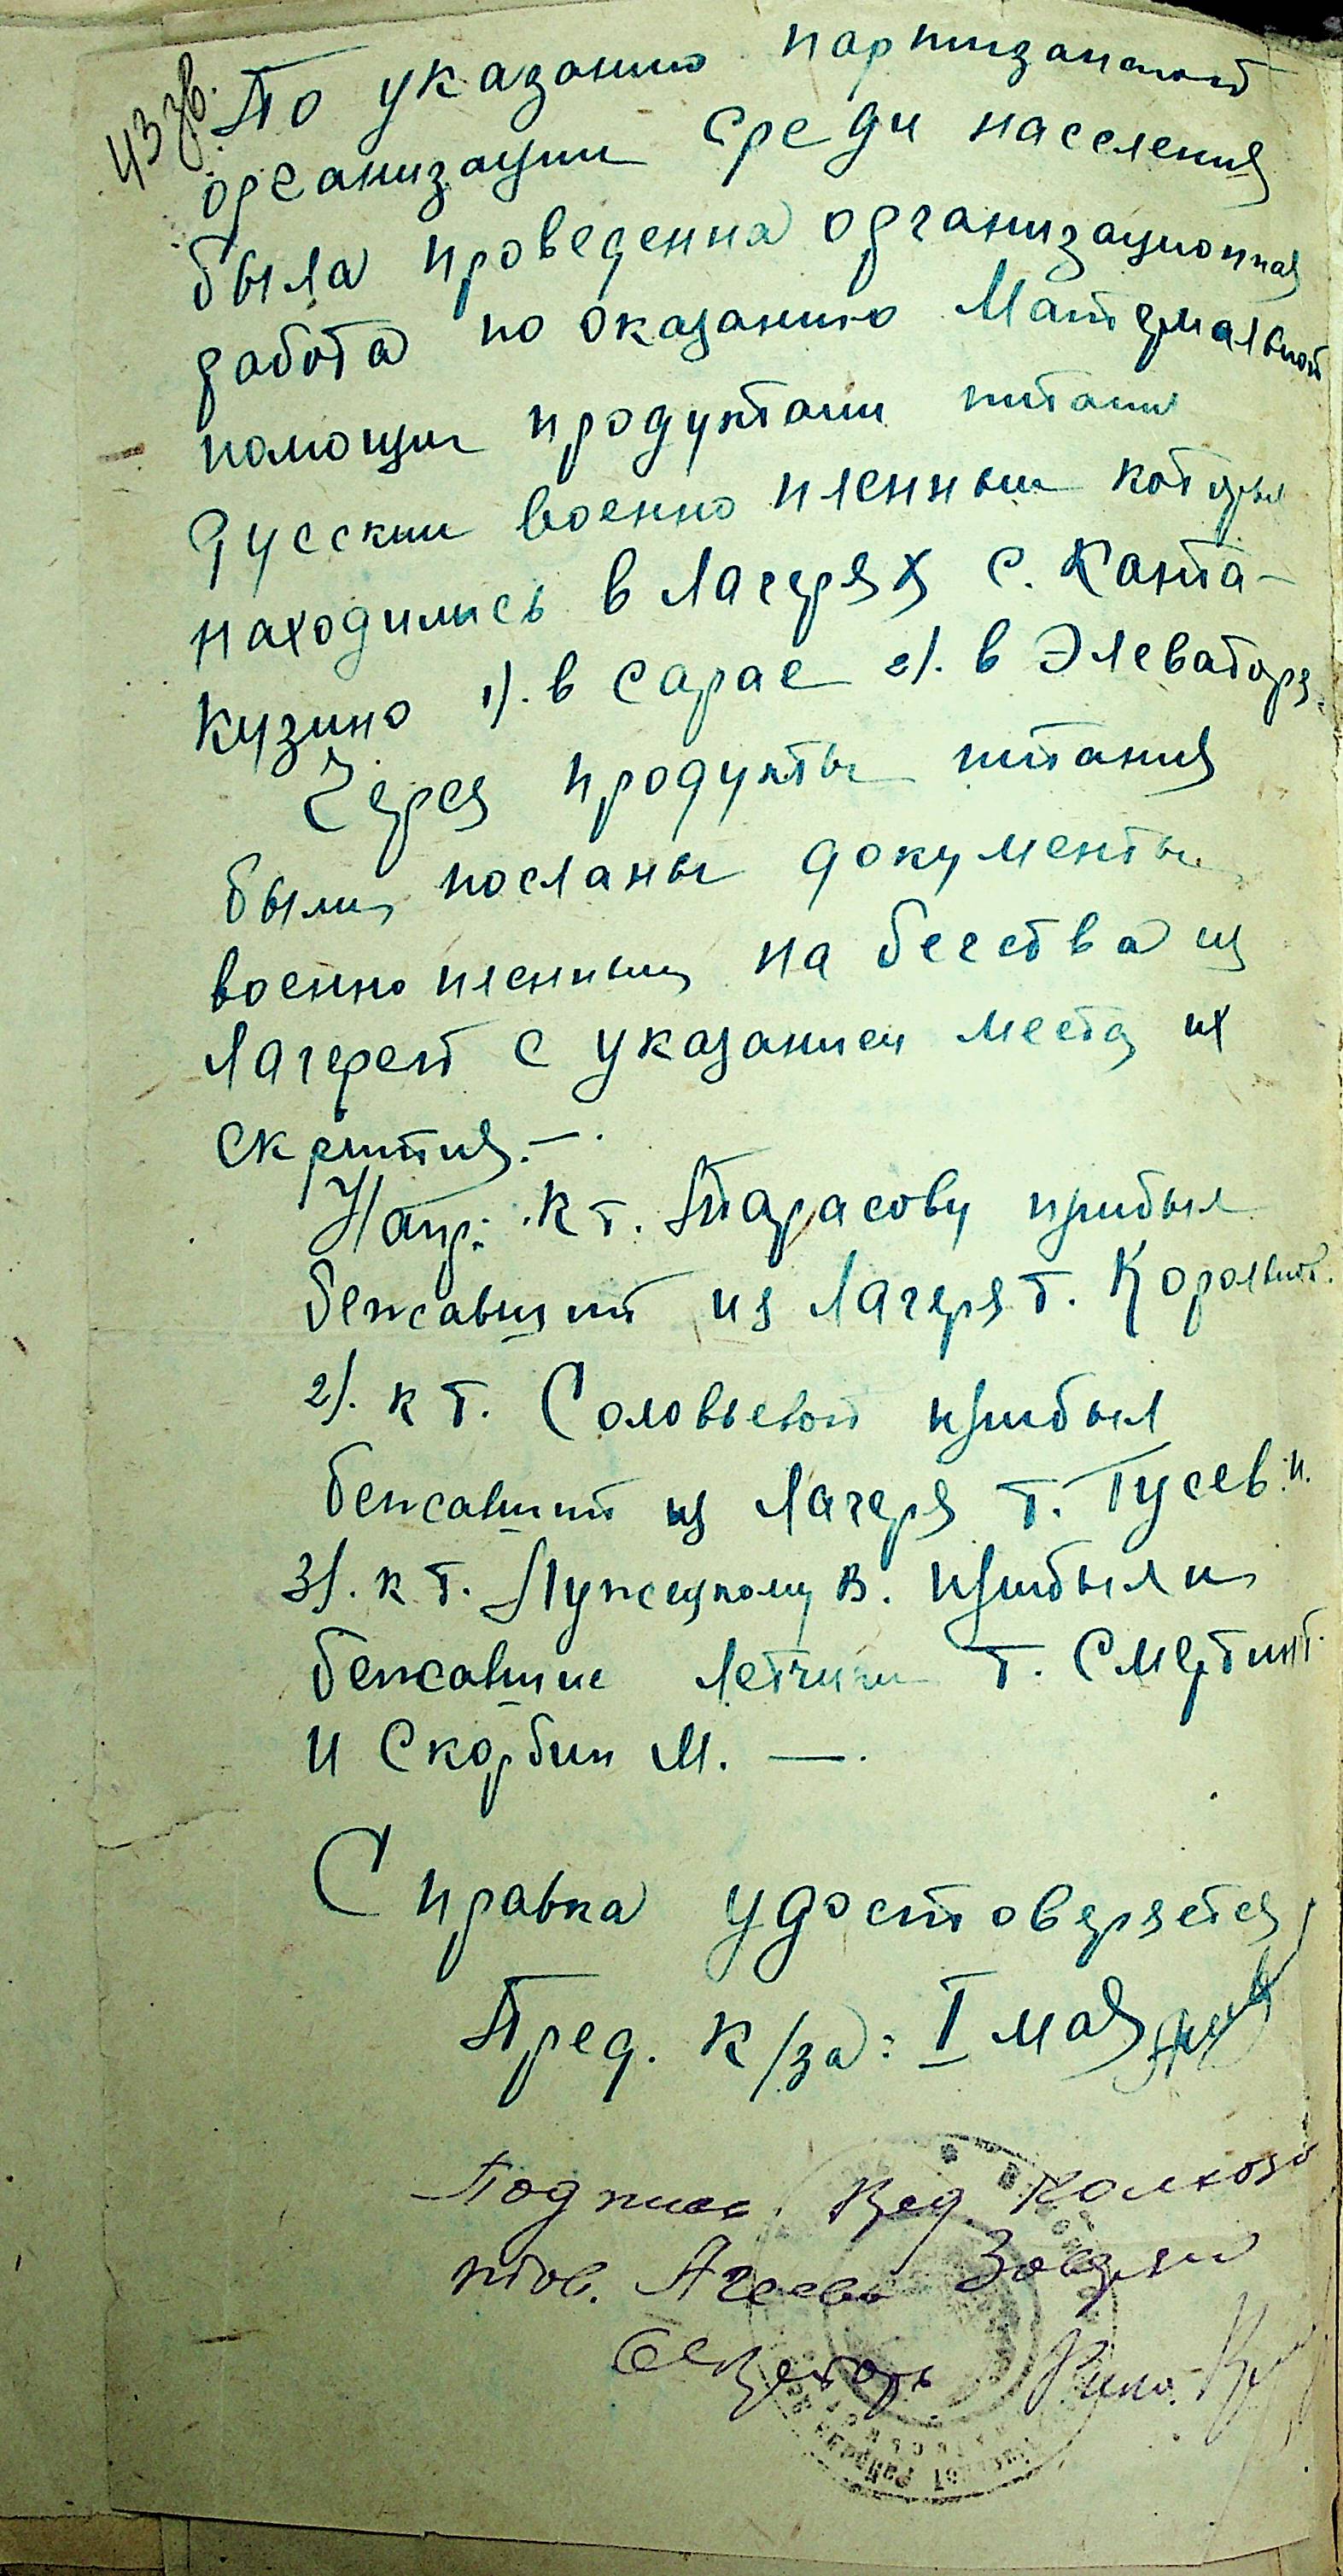 43 об.
По указанию партизанской
организации среди населения
была проведенна организационная
работа по оказанию Материальной
помощи продуктами питани
Русским военно пленным которые
находились в Лагерях с. Канта-
кузино 1). в сарае 2). в Элеваторе.
Через продукты питания
были посланы документы
военно пленным на бегства из
Лагерей с указанием места их
скрытия. —.
Напр: к т. Тарасову прибыл
бежавший из Лагеря т.
2). к т. Соловьевой прибыл
бежавший из Лагеря т. Гусев. И.
3). к т. Лужецкому В. прибыли
бежавшие летчики т.
и Скорбин М. —.
Справка удостоверяется
Пред. к/за: I мая
Подпись Пред. Колхоза
тов. Агеева Заверяю
Секретарь